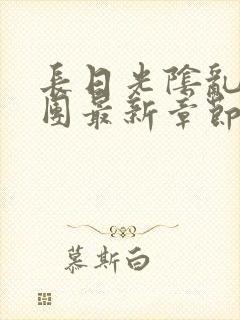 長日光陰亂
團最新章節
慕斯白